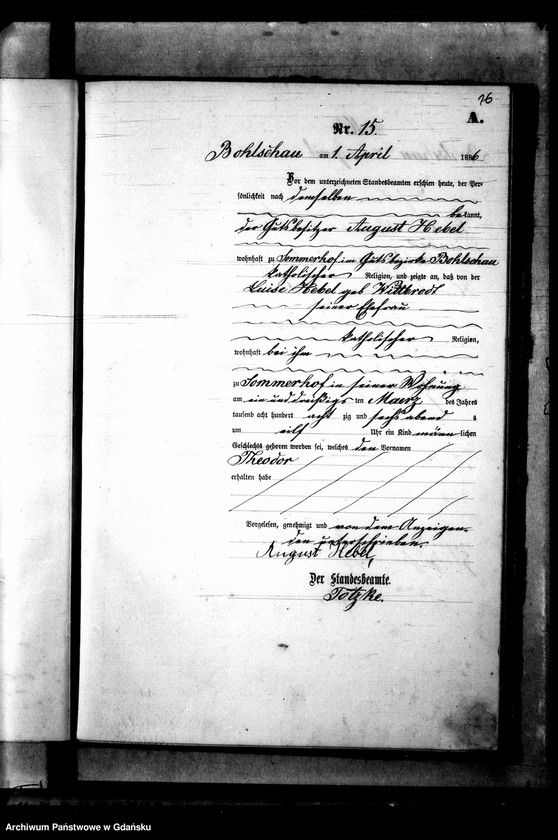 76
A.
Nr. 15.
Bohlschau am 1. April 1886
Vor dem unterzeichneten Standesbeamten erschien heute, der Per-
sönlichkeit nach demselben
bekannt,
der Gutsbesitzer August Hebel
wohnhaft zu Sommerhof im Gutsbezirke Bohlschau
katholischer Religion, und zeigte an, daß von der
Luise Hebel geb Wittbrodt
seiner Ehefrau
katholischer Religion,
wohnhaft bei ihm
zu Sommerhof in seiner Wohnung
am ein und dreißigsten Maerz des Jahres
tausend acht hundert acht zig und sechs abends
um eilf Uhr ein Kind männlichen
Geschlechts geboren worden sei, welches den Vornamen
Theodor
erhalten habe
Vorgelesen, genehmigt und von dem Anzeigen-
den unterschrieben.
August Hebel,
Der Standesbeamte.
Totzke.
Archiwum Państwowe w Gdańsku